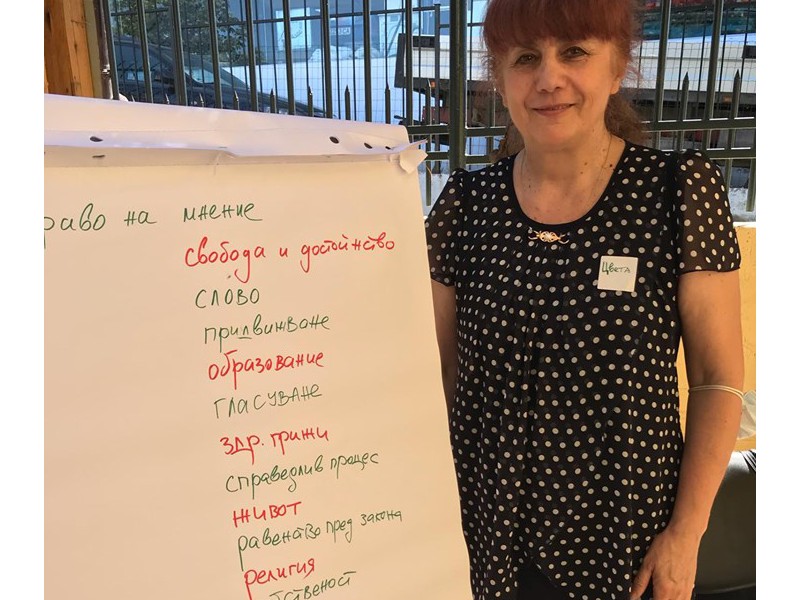 раво на мнение
свобода и достойнство
слово
придвижване
образование
гласуване
здр. грижи
справедлив процес
живот
равенство пред закона
религия
тственост
Цвета